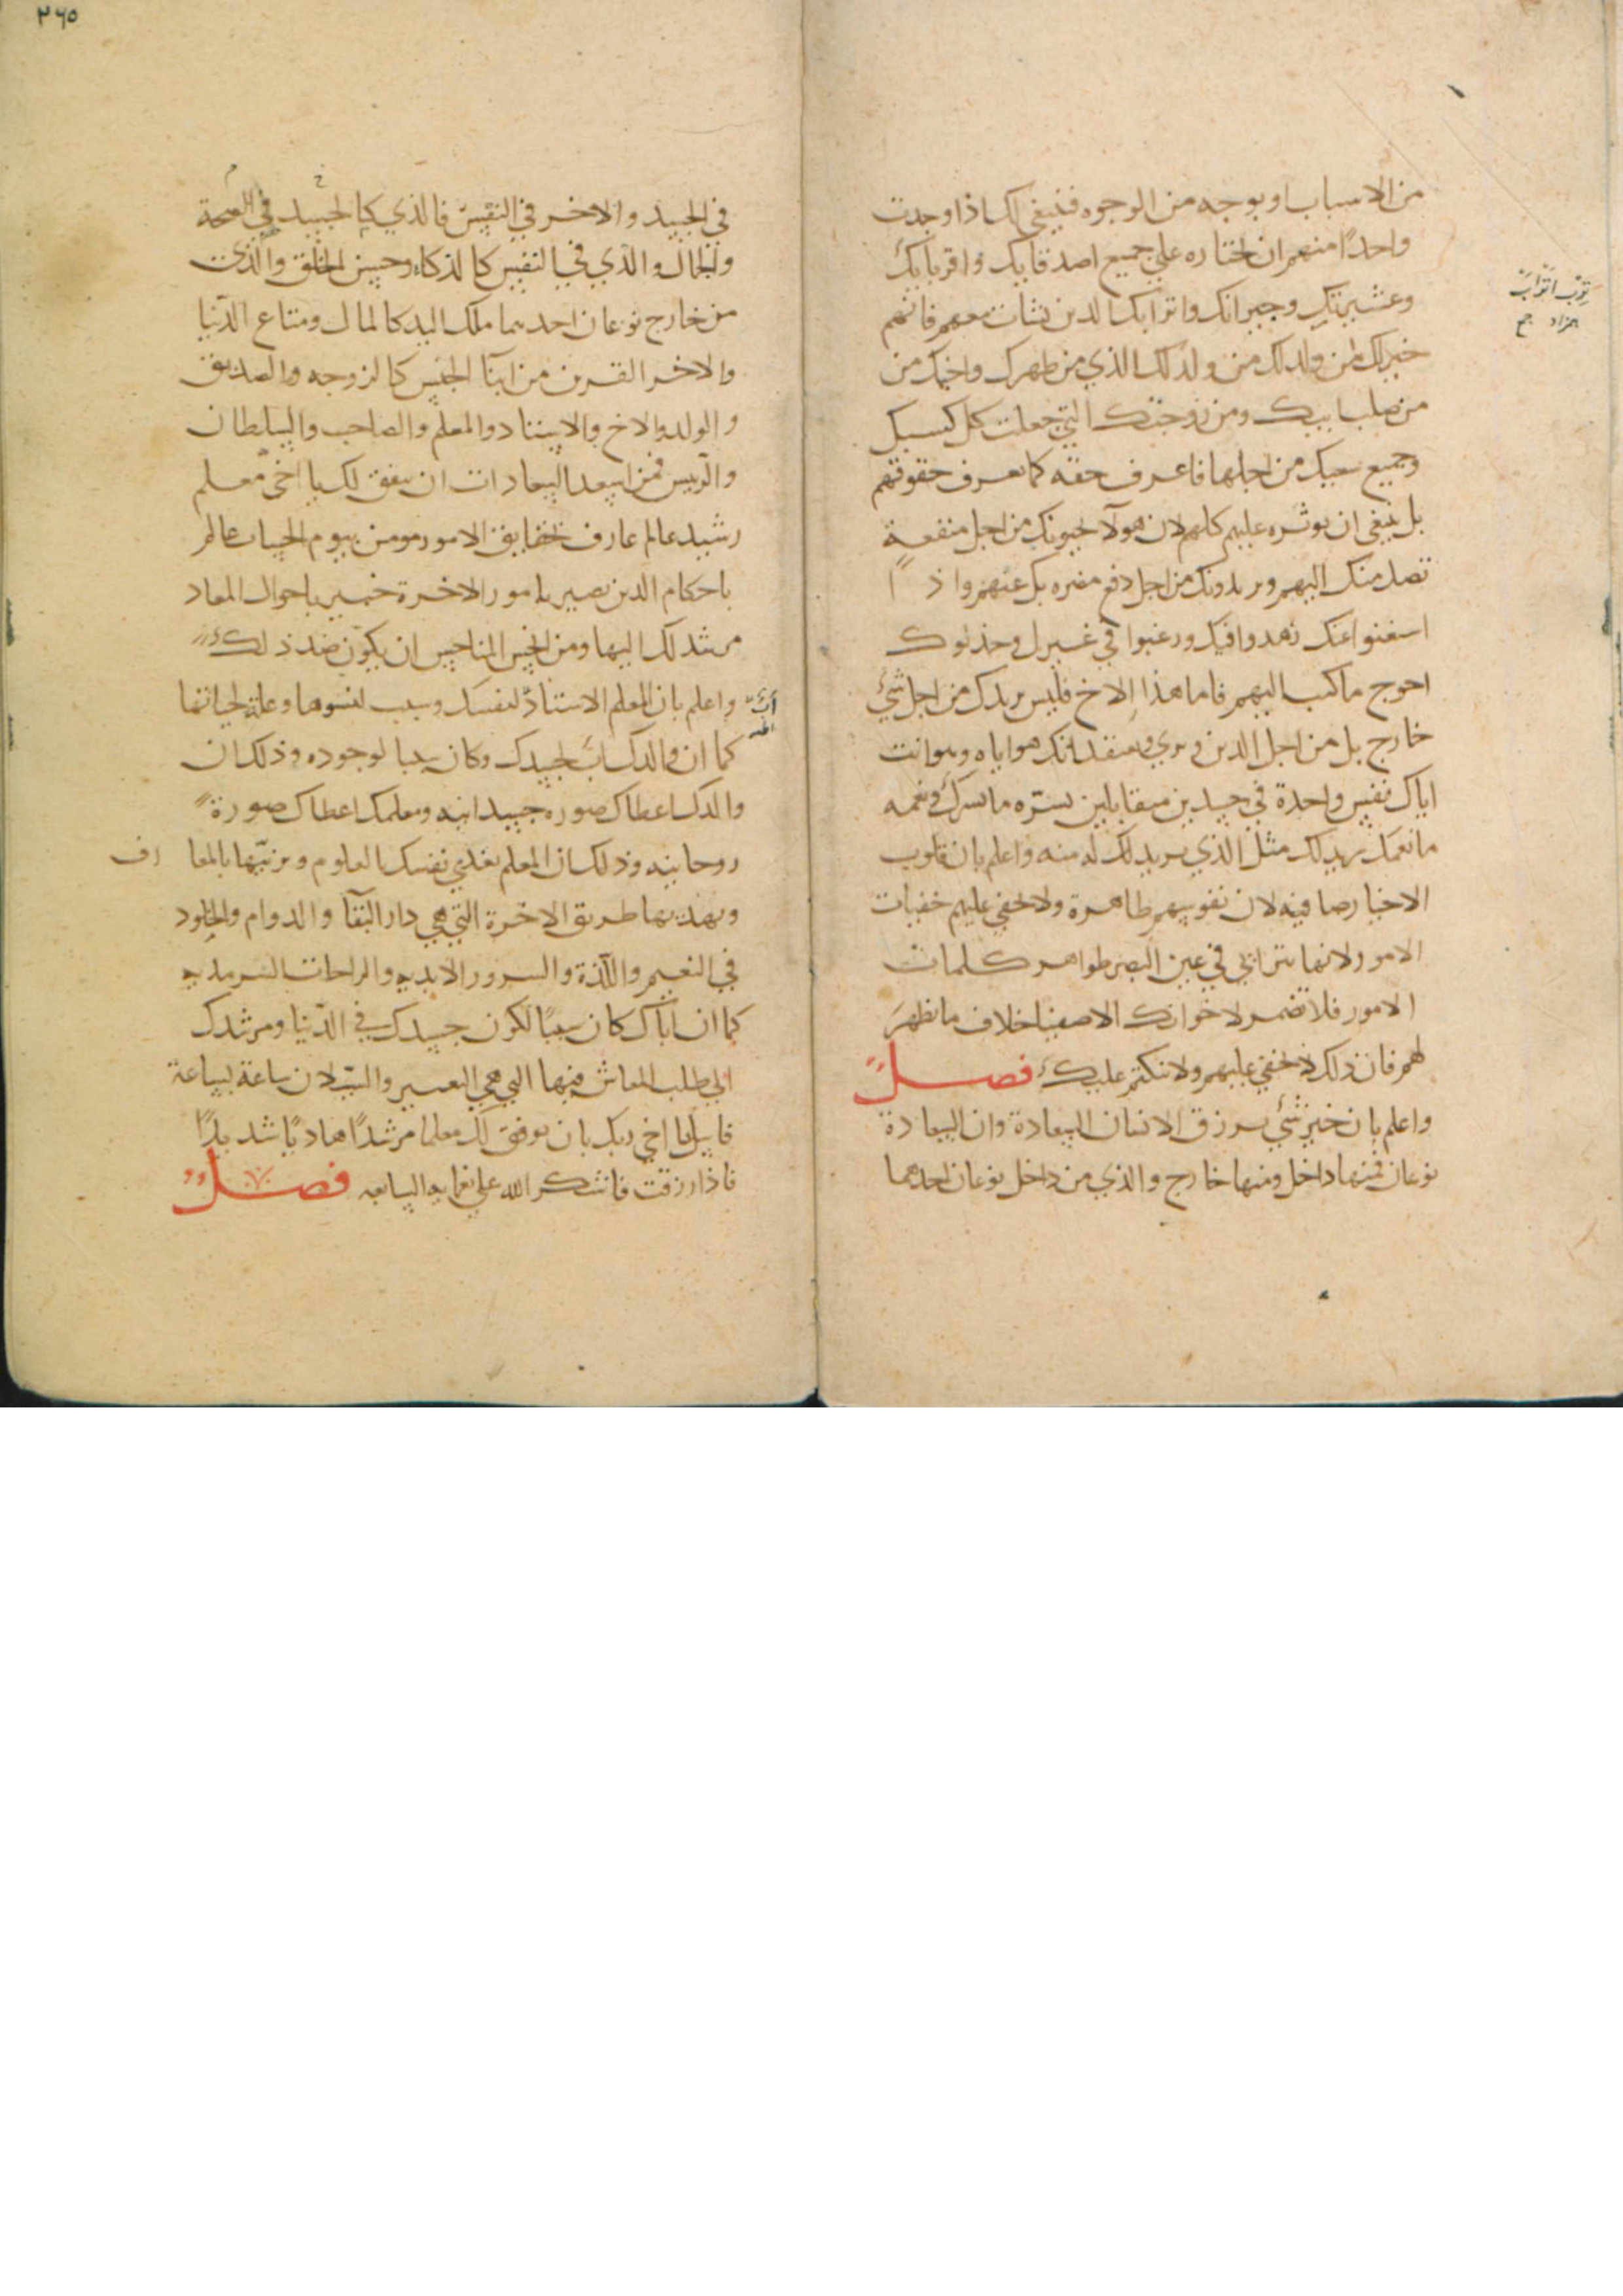 من الاسباب او بوجه من الوجوه فينبغي لك اذا وجدت
واحدًا منهم ان تختاره علي جميع اصدقايك واقربايك
وعشيرتك وجيرانك واترابك الذين نشات معهم فانهم
خير لك من ولدك الذي من ظهرك واخيك من
من صلب ابيك ومن زوجتك التي جعلت كل كسبك
وجميع سعيك من اجلها فاعرف حقه كما تعرف حقوقهم
بل ينبغي ان توثره عليهم كلهم لان هولآ يحبونك من اجل منفعة
تصل منك اليهم ويريدونك من اجل دفع مضره بك عنهم واذا
استغنوا عنك زهدوا فيك ورغبوا في غيرك وخذلوك
احوج ما كنت اليهم فاما هذا الاخ فليس يريدك من اجل شئ
خارج بل من اجل الدين ويري ويعتقد انك هو اياه وهو انت
اياك نفس واحدة في جسدين متقابلين يسرّه ما يسرك ويغمه
ما يغمك يريد لك مثل الذي يريد لك له منه واعلم بان قلوب
الاخيار صافيه لان نفوسهم طاهرة ولا تخفي عليهم خفيات
الامور لانها تترائي في عين البصر ظواهر كلمات
الامور فلا تضمر لاخوانك الاصفيا خلاف ما تظهر
لهم فان ذلك لا يخفي عليهم ولا تنكتم عليك فصــل
واعلم بان خير شئ يرزق الانسان السعادة وان السعادة
نوعان فمنها داخل ومنها خارج والذي من داخل نوعان احدهما
ترب اتراب
همزاد جمع
٣٦٥
في الجسد والاخر في النفس فالذي في الجسد كالصحة
والجمال والذي في النفس كالذكاء وحسن الخلق والذي
من خارج نوعان احدهما ملك اليد كالمال ومتاع الدّنيا
والاخر القرين من ابنآ الجنس كالزوجه والصديق
والولد والاخ والاستاد والمعلم والصاحب والسلطان
والرّييس فمن اسعد السعادات ان يتفق لك يا اخي معلم
رشيد عالم عارف بحقايق الامور مومن بيوم الحساب عالم
باحكام الدين بصير بامور الاخرة خبير باحوال المعاد
مرشد لك اليها ومن انحس المناحس ان يكون ضد ذلك
واعلم بان المعلم الاستاذ لنفسك وسبب لنشوها وعلة لحياتها
اب
كما ان والدك اب لجسدك وكان سببا لوجوده وذلك ان
والدك اعطاك صوره جسدانيه ومعلمك اعطاك صورة
روحانيه وذلك ان المعلم يغذي نفسك بالعلوم ويربّيها بالمعارف
ويهديها طريق الاخرة التي هي دار البقآ والدوام والخلود
في النعيم واللّذة والسرور الابديه والراحات السرمديه
كما ان اباك كان سببًا لكون جسدك في الدّنيا ومرشدك
الي طلب المعاش فيها التي هي العسير والتبدلان ساعة بساعة
فاسل يا اخي ربك بان يوفق لك معلما مرشدًا هاديًا شديدًا
فاذا رزقت فاشكر الله علي نعمايه السابغه فصــل